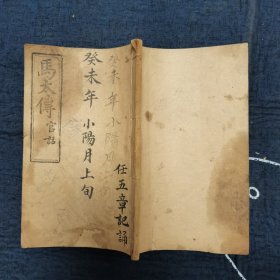 馬太傳
官話
癸未年 小陽月上旬
癸未年 小陽
任五章記誦